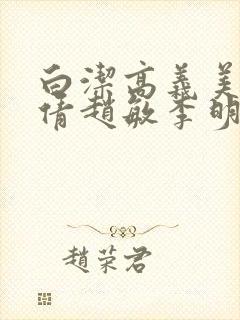 白潔高義美
倩趙敏李明
趙荣君